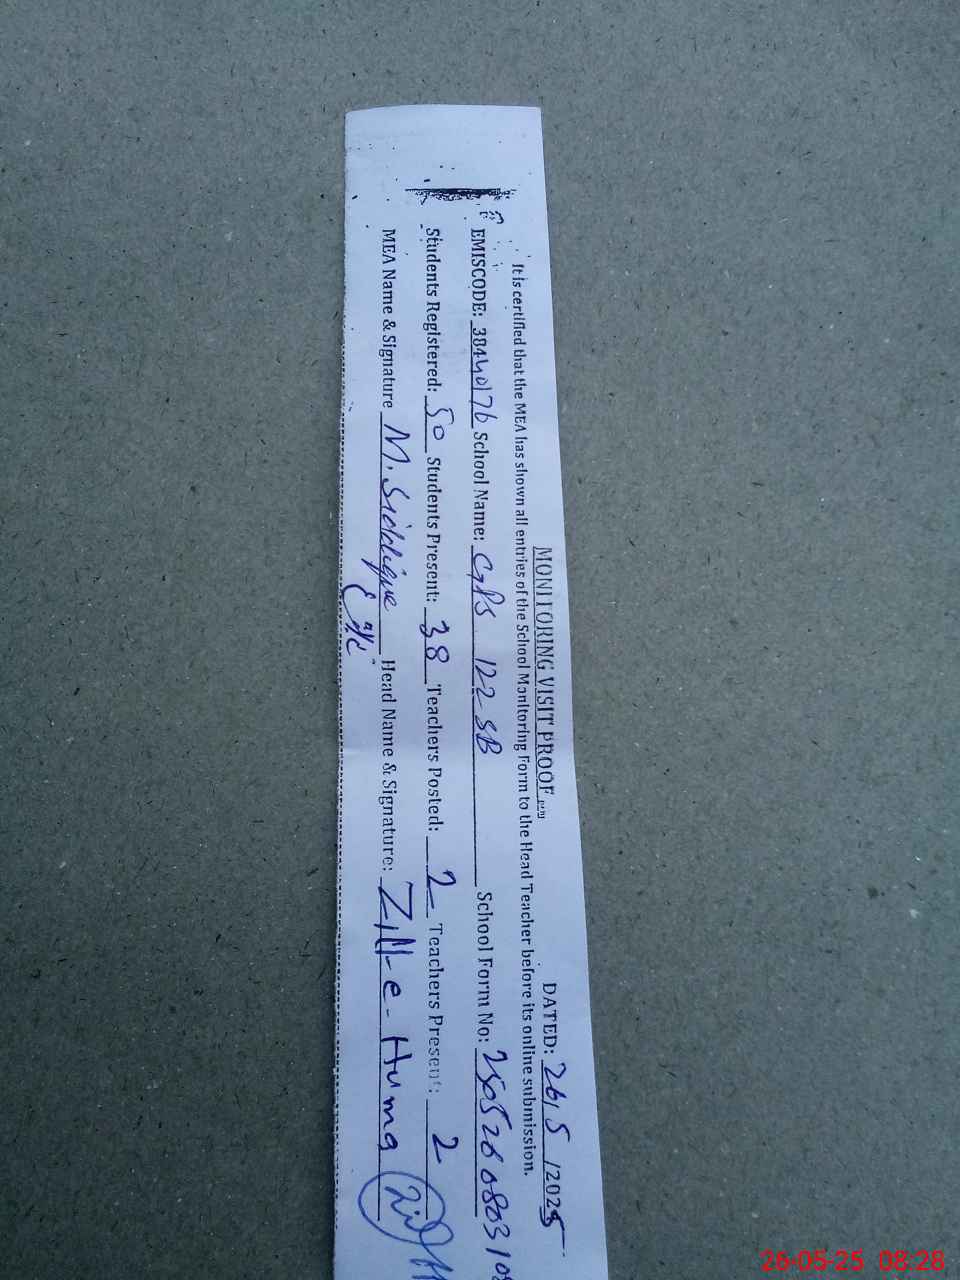 MONITORING VISIT PROOF
DATED: 26/5/2025
It is certified that the MEA has shown all entries of the School Monitoring Form to the Head Teacher before its online submission.
EMISCODE: 38440176 School Name: GPS 122 SB School Form No: 250526080310
Students Registered: 50 Students Present: 38 Teachers Posted: 2 Teachers Present: 2
MEA Name & Signature M. Siddique Head Name & Signature: Zill-e-Huma
26-05-25 08:28